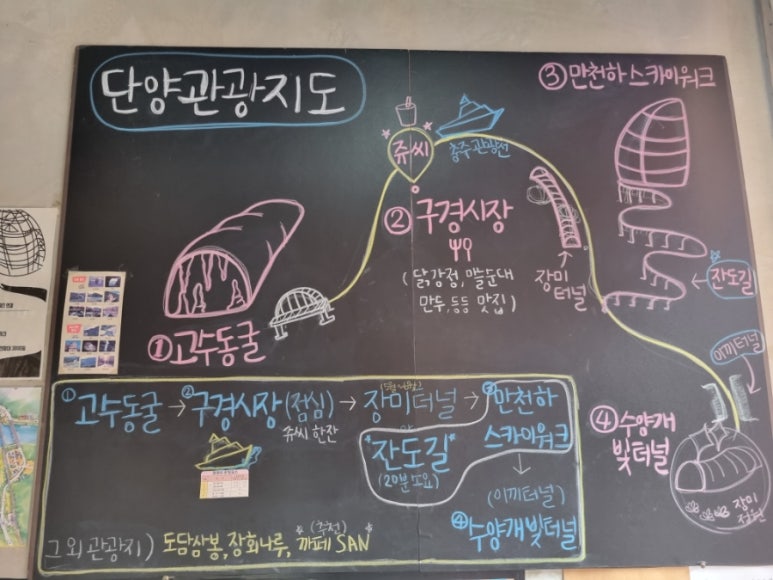 단양관광지도
③만천하스카이워크
쥬씨
충주관광선
② 구경시장
(닭강정, 마늘순대
만두, 등등 맛집)
장미
터널
잔도길
①고수동굴
이끼터널
④수양개
빛터널
장미
정원
①고수동굴→②구경시장(점심)→장미터널→③만천하
쥬씨 한잔
스카이워크
*잔도길*
(20분소요)
(이끼터널)
④수양개빛터널
(추천)
그 외 관광지) 도담삼봉, 장회나루, *까페 SAN*